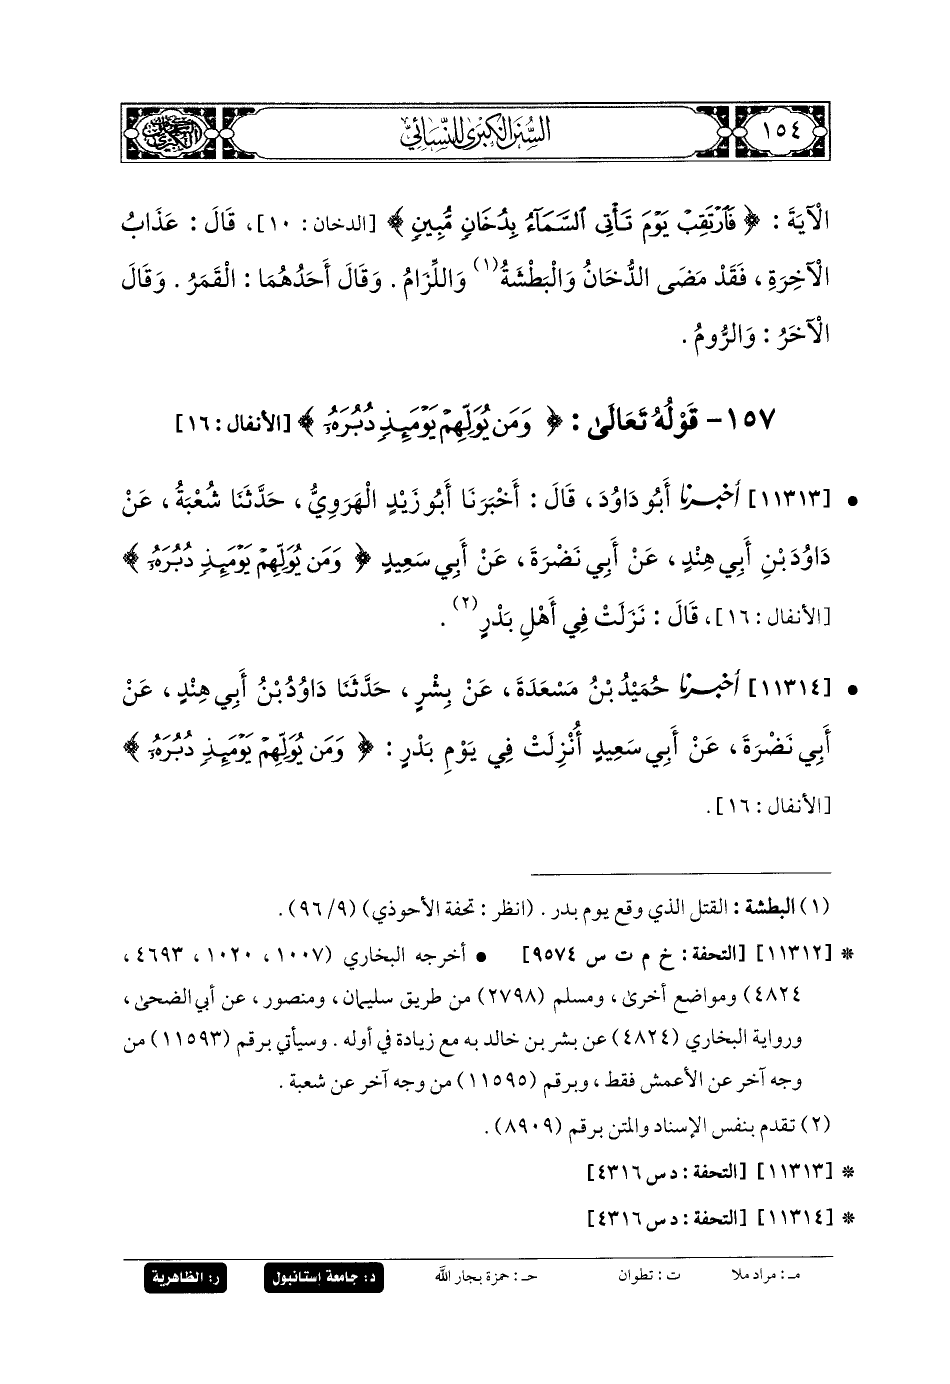 ١٥٤
السنن الكبرى للنسائي
الْآيَةَ : ﴿ فَٱرْتَقِبْ يَوْمَ تَأْتِى ٱلسَّمَآءُ بِدُخَانٍ مُّبِينٍ ﴾ [الدخان : ١٠]، قَالَ : عَذَابُ
الْآخِرَةِ ، فَقَدْ مَضَى الدُّخَانُ وَالْبَطْشَةُ(١) وَاللِّزَامُ . وَقَالَ أَحَدُهُمَا : الْقَمَرُ . وَقَالَ
الْآخَرُ : وَالرُّومُ .
١٥٧- قَوْلُهُ تَعَالَى : ﴿ وَمَن يُوَلِّهِمْ يَوْمَئِذٍ دُبُرَهُۥٓ ﴾ [الأنفال : ١٦]
• [١١٣١٣] أخبرنا أَبُو دَاوُدَ ، قَالَ : أَخْبَرَنَا أَبُو زَيْدٍ الْهَرَوِيُّ ، حَدَّثَنَا شُعْبَةُ ، عَنْ
دَاوُدَ بْنِ أَبِي هِنْدٍ ، عَنْ أَبِي نَضْرَةَ ، عَنْ أَبِي سَعِيدٍ ﴿ وَمَن يُوَلِّهِمْ يَوْمَئِذٍ دُبُرَهُۥٓ ﴾
[الأنفال : ١٦]، قَالَ : نَزَلَتْ فِي أَهْلِ بَدْرٍ(٢) .
• [١١٣١٤] أخبرنا حُمَيْدُ بْنُ مَسْعَدَةَ ، عَنْ بِشْرٍ ، حَدَّثَنَا دَاوُدُ بْنُ أَبِي هِنْدٍ ، عَنْ
أَبِي نَضْرَةَ ، عَنْ أَبِي سَعِيدٍ أُنْزِلَتْ فِي يَوْمِ بَدْرٍ : ﴿ وَمَن يُوَلِّهِمْ يَوْمَئِذٍ دُبُرَهُۥٓ ﴾
[الأنفال : ١٦] .
(١) البطشة : القتل الذي وقع يوم بدر . (انظر : تحفة الأحوذي) (٩/ ٩٦) .
* [١١٣١٢] [التحفة : خ م ت س ٩٥٧٤] • أخرجه البخاري (١٠٠٧ ، ١٠٢٠ ، ٤٦٩٣ ،
٤٨٢٤) ومواضع أخرى ، ومسلم (٢٧٩٨) من طريق سليمان ، ومنصور ، عن أبي الضحى ،
ورواية البخاري (٤٨٢٤) عن بشر بن خالد به مع زيادة في أوله . وسيأتي برقم (١١٥٩٣) من
وجه آخر عن الأعمش فقط ، وبرقم (١١٥٩٥) من وجه آخر عن شعبة .
(٢) تقدم بنفس الإسناد والمتن برقم (٨٩٠٩) .
* [١١٣١٣] [التحفة : د س ٤٣١٦]
* [١١٣١٤] [التحفة : د س ٤٣١٦]
مـ : مراد ملا ت : تطوان حـ : حمزة بجار الله د: جامعة إستانبول ر: الظاهرية